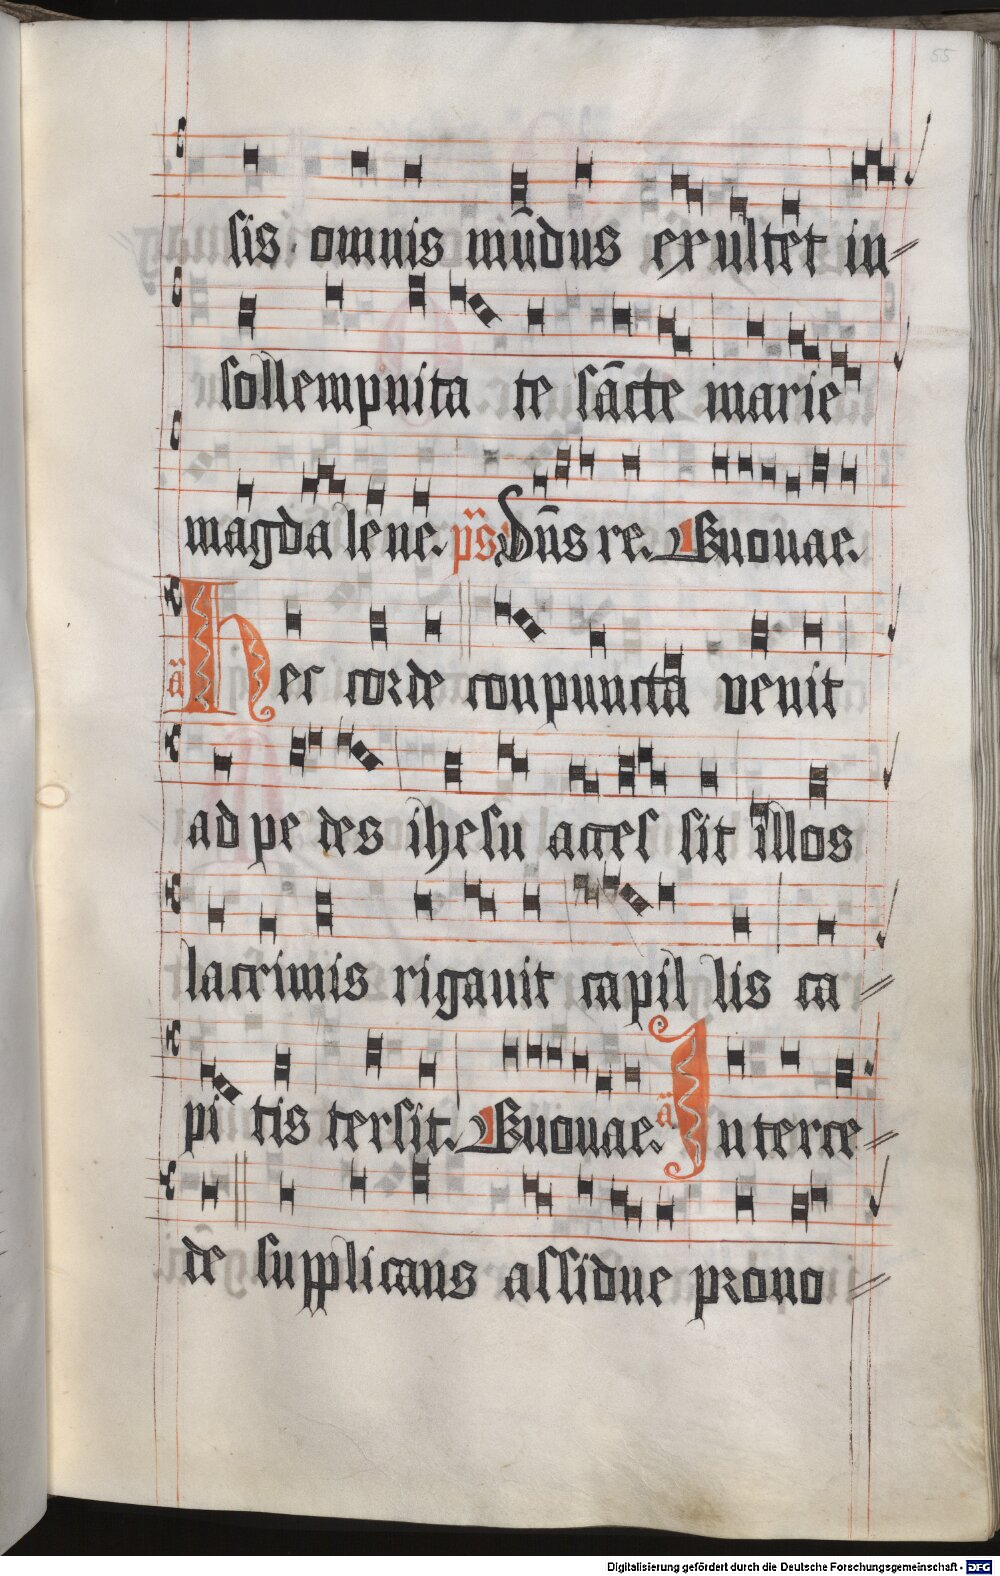 55
sis omnis mūdus exultet in
sollempnita te sācte marie
magda lene. ps Dn̄s re. Euouae.
a Hec corde conpuncta venit
ad pe des ihesu acces sit illos
lacrimis rigauit capil lis ca
pi tis tersit. Euouae. a Interce
de supplicans assidue prono
Digitalisierung gefördert durch die Deutsche Forschungsgemeinschaft - DFG